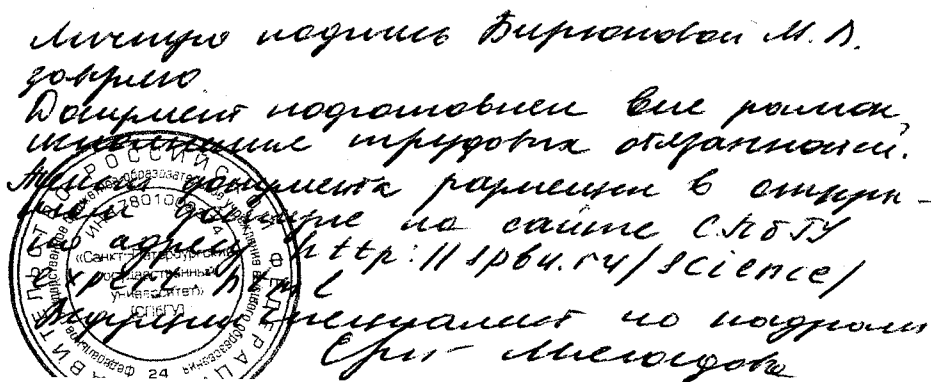 Личную подпись Бирюковой М.В.
заверяю
Документ подготовлен вне рамок
исполнения трудовых обязанностей.
документа размещен в откры-
том доступе на сайте СПбГУ
по адресу http://spbu.ru/science/
expert.html
специалист по кадрам
ПРАВИТЕЛЬСТВО РОССИЙСКОЙ ФЕДЕРАЦИИ
«Санкт-Петербургский
государственный
университет»
(СПбГУ)
24